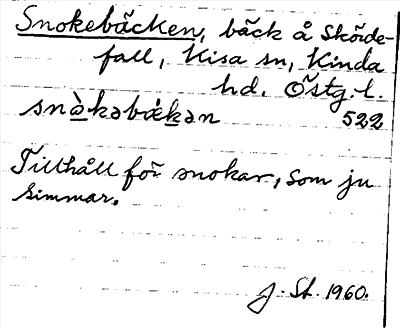 Snokebäcken, bäck å Skörde-
fall, Kisa sn, Kinda
hd. Östg. l.
snὰkəbækən 522
Tillhåll för snokar, som ju
simmar.
J. St. 1960.